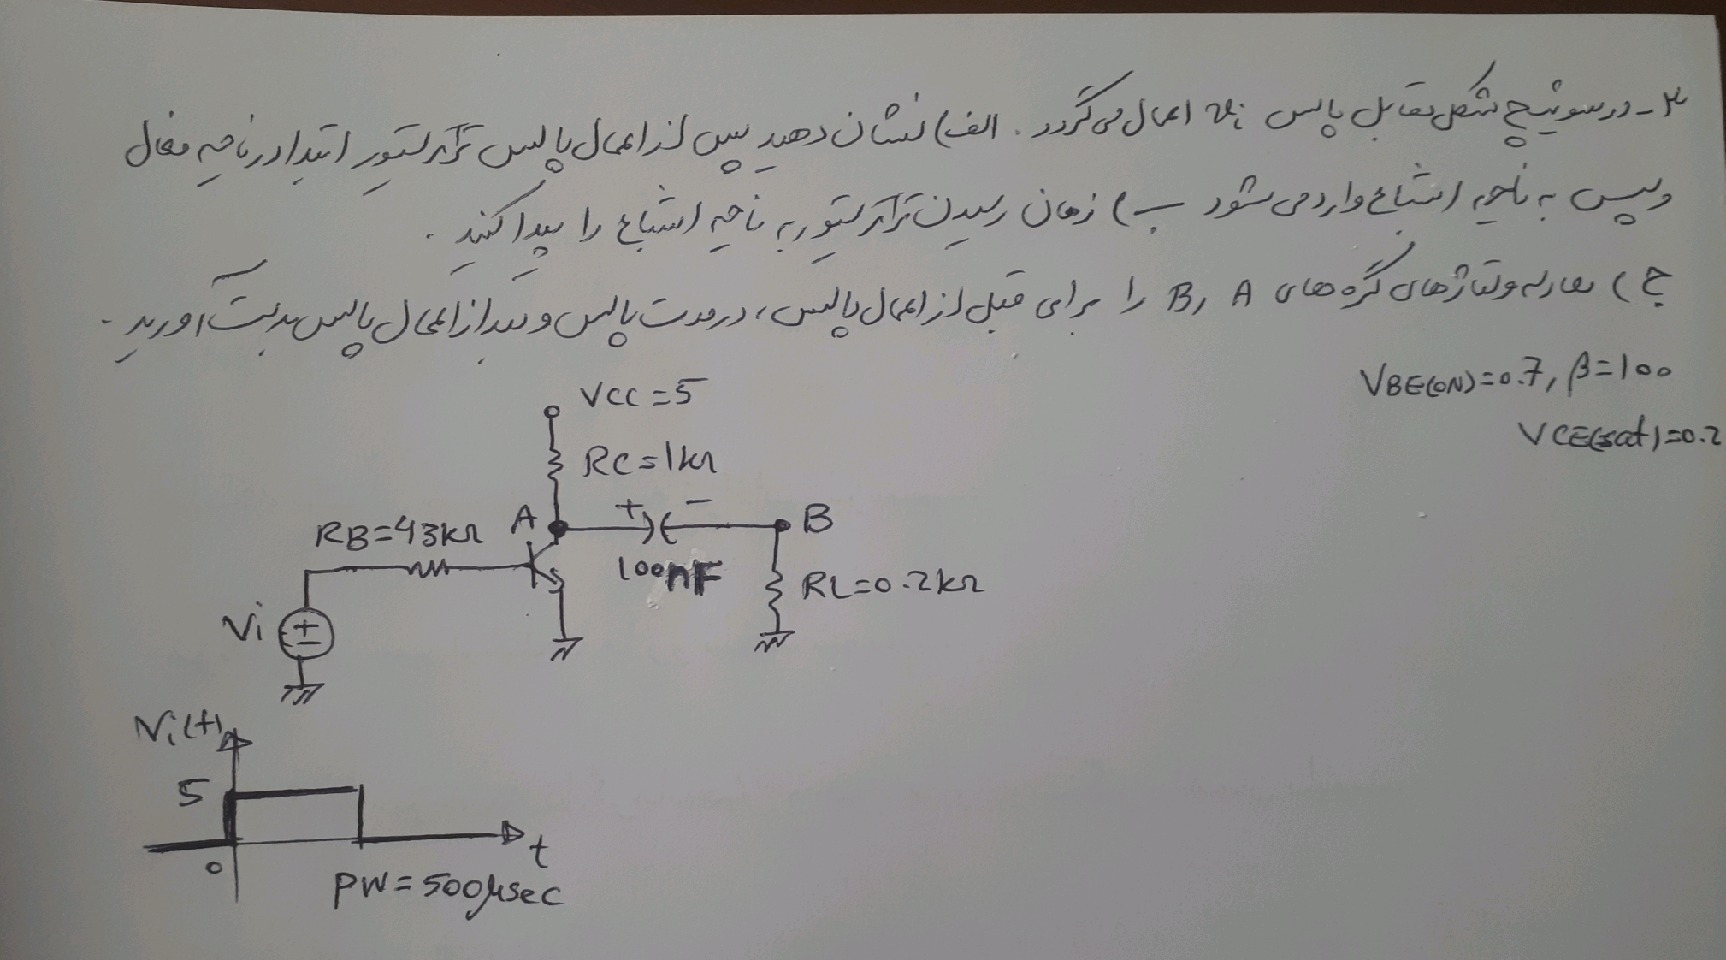 ۳- در سوئیچ شکل مقابل پالس vi اعمال می گردد. الف) نشان دهید پس از اعمال پالس ترانزیستور ابتدا در ناحیه فعال
و سپس به ناحیه اشباع وارد می شود ب) زمان رسیدن ترانزیستور به ناحیه اشباع را پیدا کنید.
ج) معادله ولتاژهای گره های A و B را برای قبل از اعمال پالس، در مدت پالس و بعد از اعمال پالس بدست آورید.
VBE(ON)=0.7, β=100
VCE(sat)=0.2
VCC=5
RC=1kΩ
RB=43kΩ
A
+ -
B
100nF
RL=0.2kΩ
Vi
+
-
Vi(t)
5
0
t
PW=500μsec